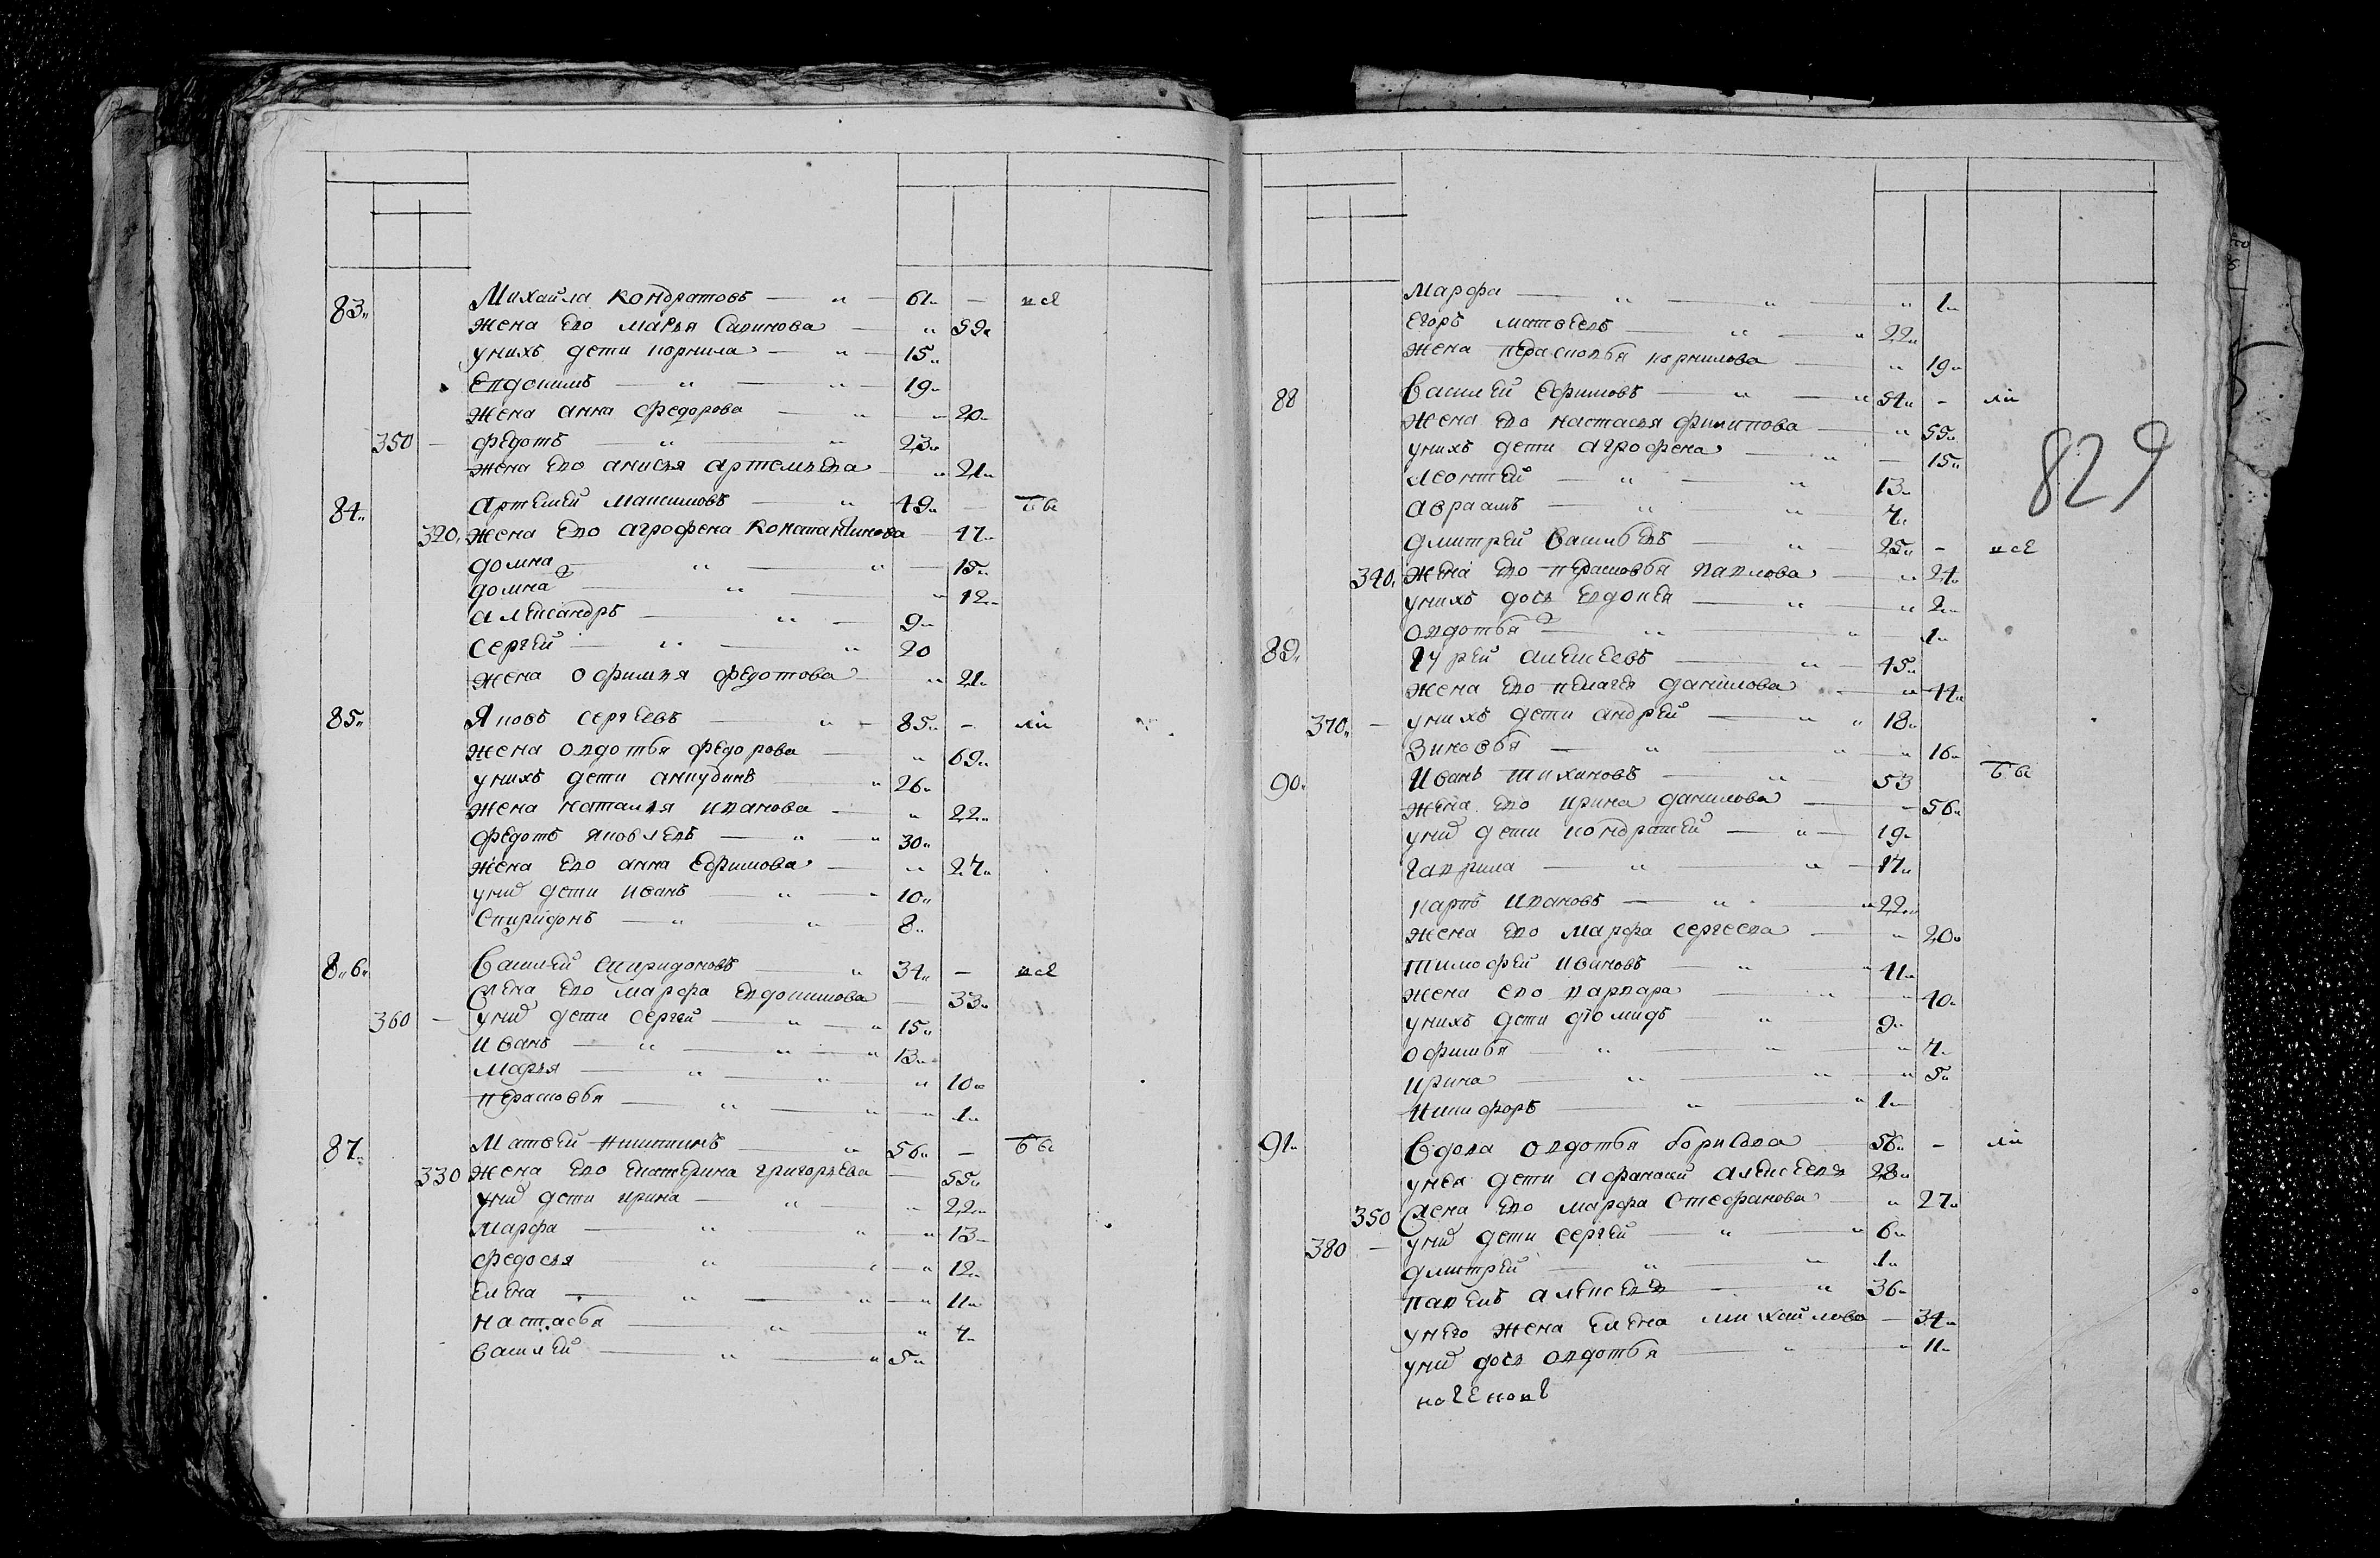 83 Михайла Кондратовъ 61 — исп
жена ево марья Савинова 59
унихъ дети корнила 15
Евдокимъ 19
жена анна федорова 20
350 — федотъ 23
жена ево анисья артемьева 21
84 артемей максимовъ 49 — бы
320 жена ево агрофена Константинова 47
домна 15
домна 2 12
александръ 9
сергей 20
жена офимья федотова 21
85 Яковъ сергеевъ 85 — ли
жена овдотья федорова 69
унихъ дети анкудинъ 26
жена наталья иванова 22
федотъ яковлевъ 30
жена ево анна Ефимова 27
унид дети иванъ 10
Спиридонъ 8
86 Василей спиридоновъ 34 — исп
Жена ево марфа Евдокимова 33
360 — унид дети сергей 15
иванъ 13
марья 10
прасковья 1
87 Матвей никитинъ 56 — бы
330 жена ево екатерина григорьева 55
унид дети ирина 22
марфа 13
федосья 12
елена 11
настасья 7
василей 5
марфа 1
егоръ матвеевъ 22
жена прасковья корнилова 19
88 Василей Ефимовъ 54 — ли
жена ево настасья филипова 55
унихъ дети агрофена 15
леонтей 13
авраамъ 7
дмитрей васильевъ 25 — исп
340 жена ево прасковья павлова 24
унихъ дочь евдокея 2
овдотья 2 1
89 гурей алексеевъ 45
жена ево пелагея данилова 44
370 — унихъ дети андрей 18
зиновья 16
90 Иванъ тихановъ 53 бы
жена ево ирина данилова 56
унид дети кондратей 19
гаврила 17
карпъ ивановъ 22
жена ево марфа сергеева 20
тимофей ивановъ 41
жена ево варвара 40
унихъ дети діомидъ 9
офимья 7
ирина 5
никифоръ 1
91 Вдова овдотья борисова 56 — ли
унея дети афанасей алексеевъ 28
350 Жена ево марфа стефанова 27
380 — унид дети сергей 6
дмитрей 1
павелъ алексеевъ 36
унево жена елена михайлова 34
унид дочь овдотья 11
829